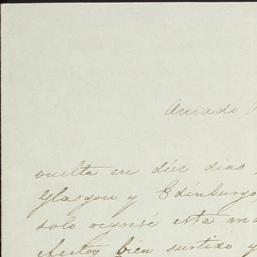 Amado
vuelta en dós dias
Glasgow y Edinburgo
solo ocupé esta ma
efectos bien surtido y